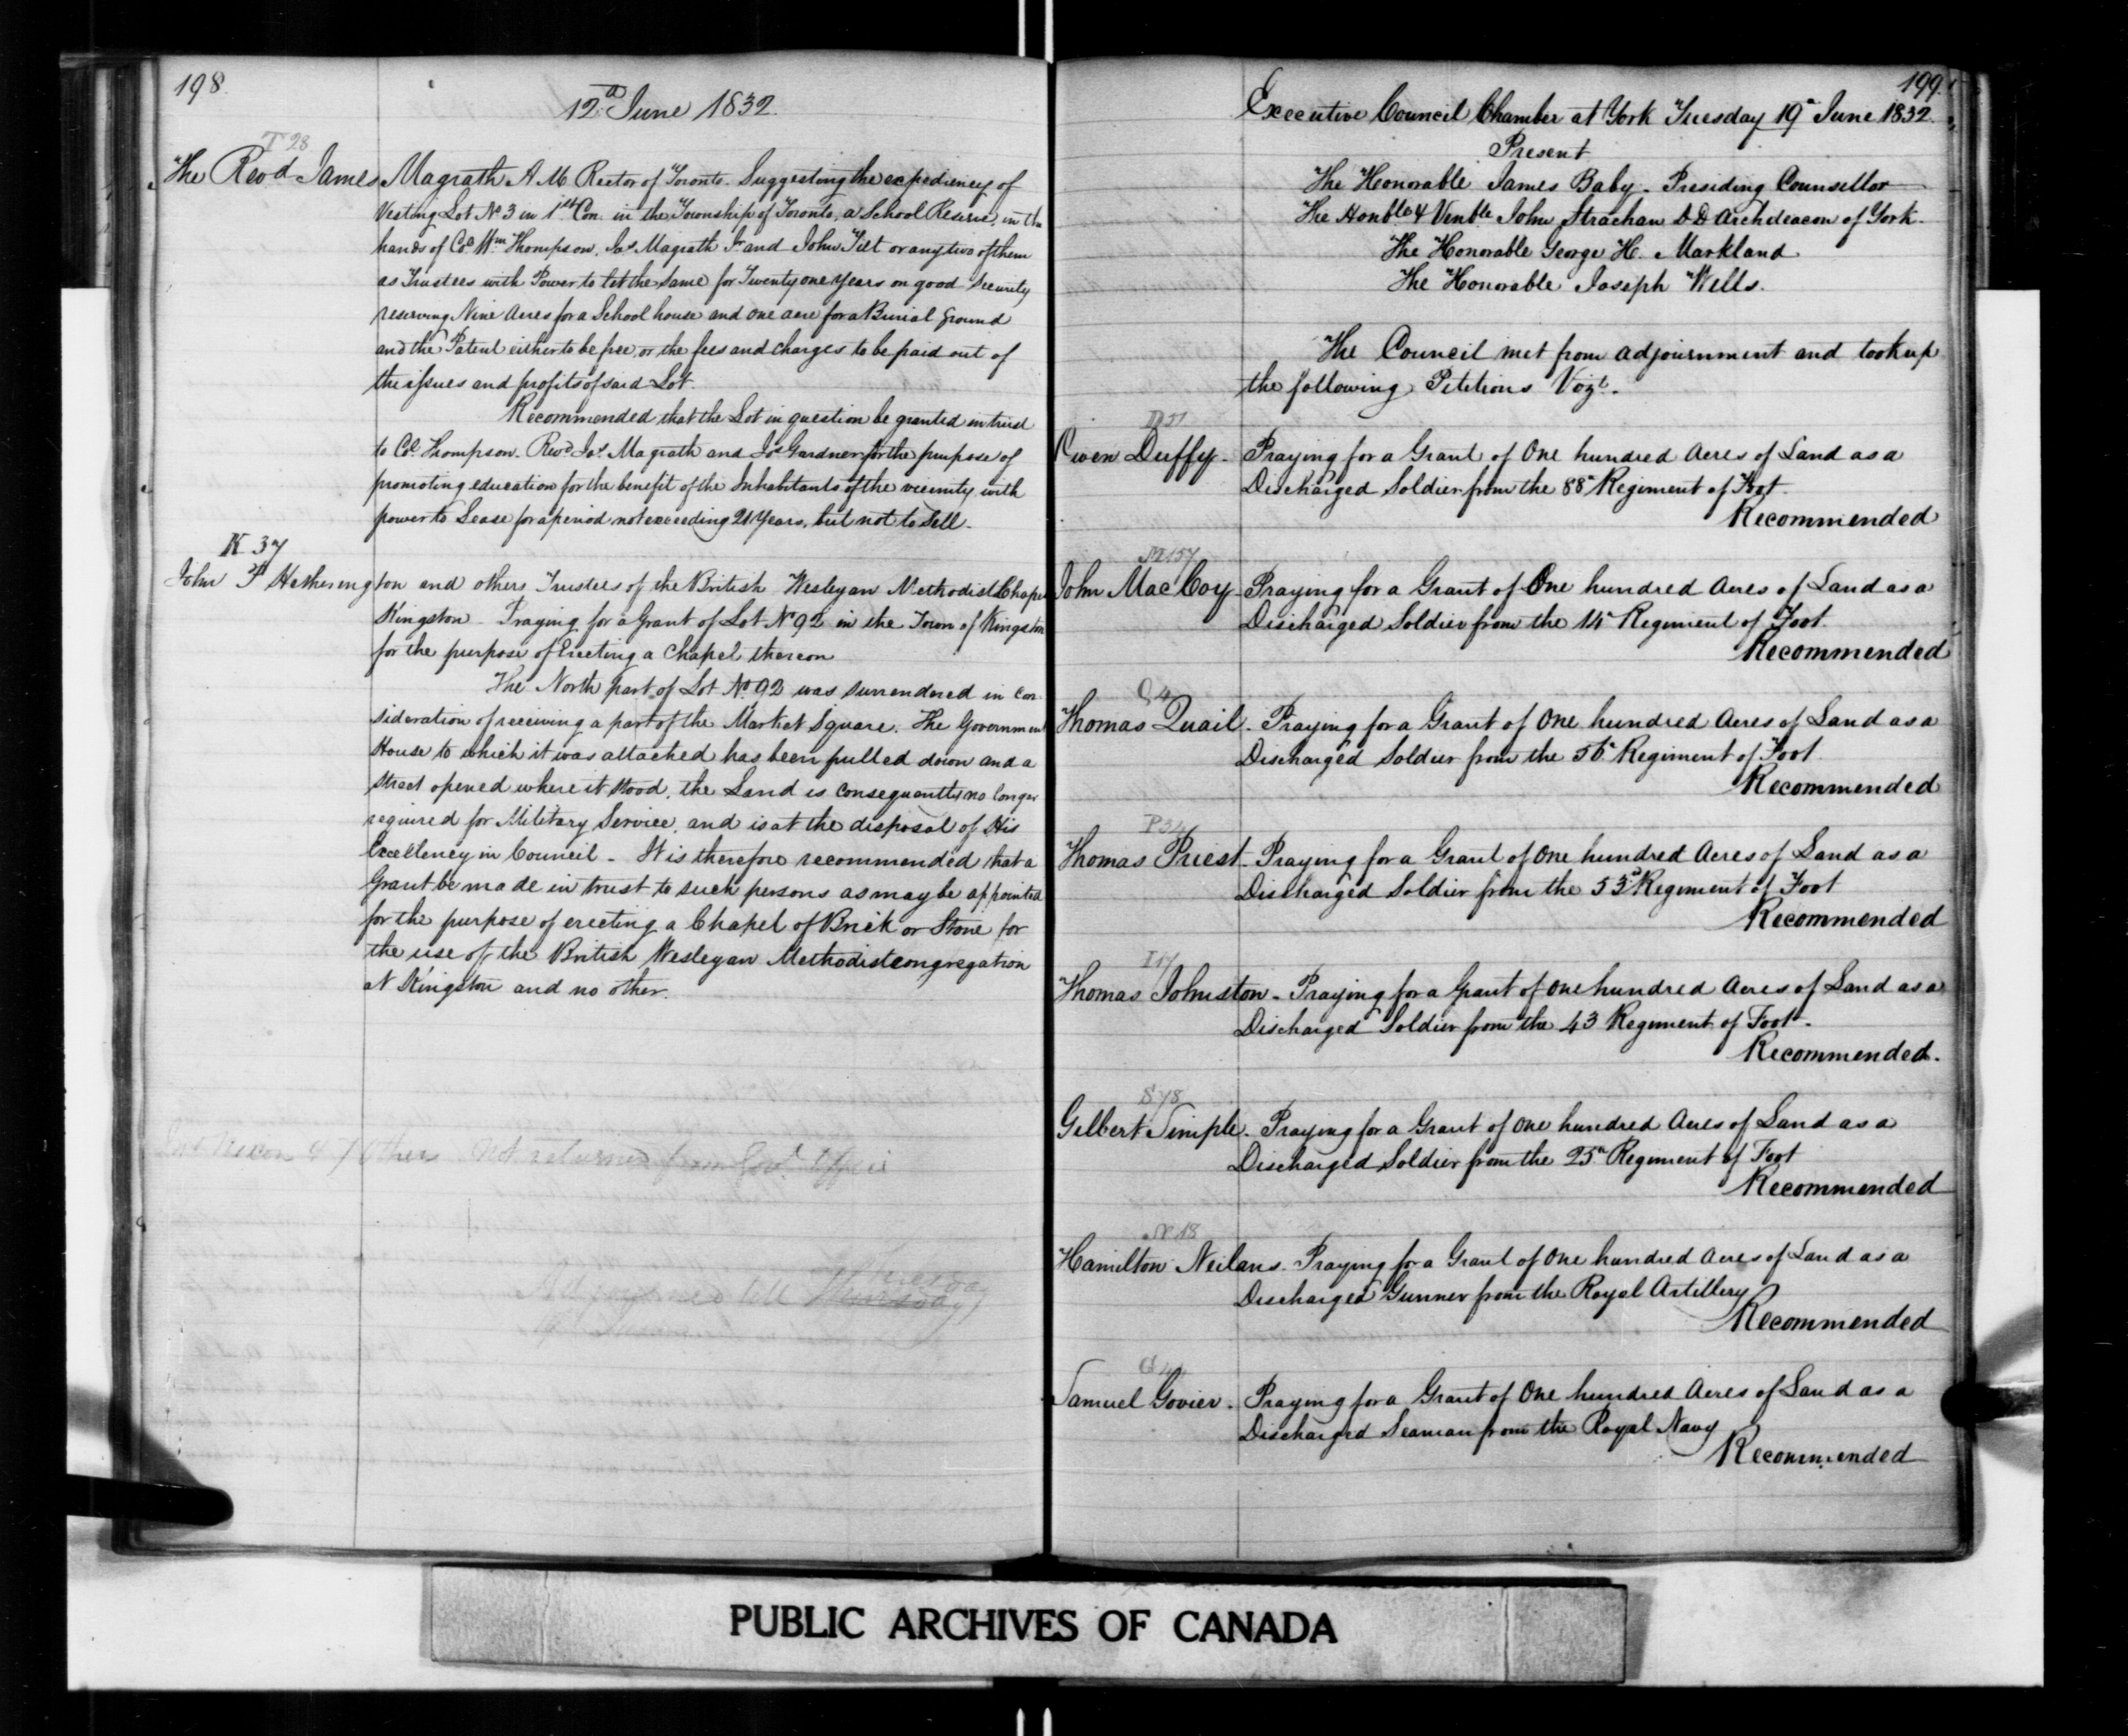 198.
12th June 1832.
T 28
The Revd James Magrath A M Rector of Toronto. Suggesting the expediency of
Vesting Lot No 3 in 1st Con. in the Township of Toronto, a School Reserve, in the
hands of Col. Wm Thompson, Jas Magrath Jr and John Tilt or any two of them
as Trustees with Power to let the same for Twenty one years on good Security
reserving Nine Acres for a School house and one acre for a Burial Ground
and the Patent either to be free or the fees and charges to be paid out of
the issues and profits of said Lot.
Recommended that the Lot in question be granted in trust
to Col Thompson. Revd Jas Magrath and Jos Gardner for the purpose of
promoting education for the benefit of the Inhabitants of the vicinity with
power to Lease for a period not exceeding 21 Years, but not to Sell.
K 37
John P Hetherington and others Trustees of the British Wesleyan Methodist Chapel
Kingston - Praying for a Grant of Lot No 92 in the Town of Kingston
for the purpose of Erecting a Chapel thereon
The North part of Lot No 92 was surrendered in con
sideration of receiving a part of the Market Square. The Government
House to which it was attached has been pulled down and a
street opened where it stood, the Land is consequently no longer
required for Military Service, and is at the disposal of His
Excellency in Council - It is therefore recommended that a
Grant be made in trust to such persons as may be appointed
for the purpose of erecting a Chapel of Brick or Stone for
the use of the British Wesleyan Methodist congregation
at Kingston and no other.
& 7 others Not returned from Govt Office
Adjourned till Thursday
Tuesday
199.
Executive Council Chamber at York Tuesday 19th June 1832.
Present
The Honorable James Baby - Presiding Counsellor
The Honble & Venble John Strachan D D Archdeacon of York.
The Honorable George H. Markland.
The Honorable Joseph Wells.
The Council met from adjournment and took up
the following Petitions Vizt.
D 51
Owen Duffy - Praying for a Grant of One hundred Acres of Land as a
Discharged Soldier from the 88th Regiment of Foot.
Recommended
M 157
John MacCoy - Praying for a Grant of One hundred Acres of Land as a
Discharged Soldier from the Regiment of Foot.
Recommended
Q 4
Thomas Quail. Praying for a Grant of One hundred Acres of Land as a
Discharged Soldier from the 56th Regiment of Foot.
Recommended
P 34
Thomas Priest - Praying for a Grant of One hundred Acres of Land as a
Discharged Soldier from the 53d Regiment of Foot
Recommended
I 17
Thomas Johnston - Praying for a Grant of One hundred Acres of Land as a
Discharged Soldier from the 43 Regiment of Foot -
Recommended.
S 78
Gilbert Simple. Praying for a Grant of One hundred Acres of Land as a
Discharged Soldier from the 25th Regiment of Foot
Recommended
N 18
Hamilton Neilans. Praying for a Grant of One hundred Acres of Land as a
Discharged Gunner from the Royal Artillery
Recommended
Samuel Govier. Praying for a Grant of One hundred Acres of Land as a
Discharged Seaman from the Royal Navy
Recommended
PUBLIC ARCHIVES OF CANADA